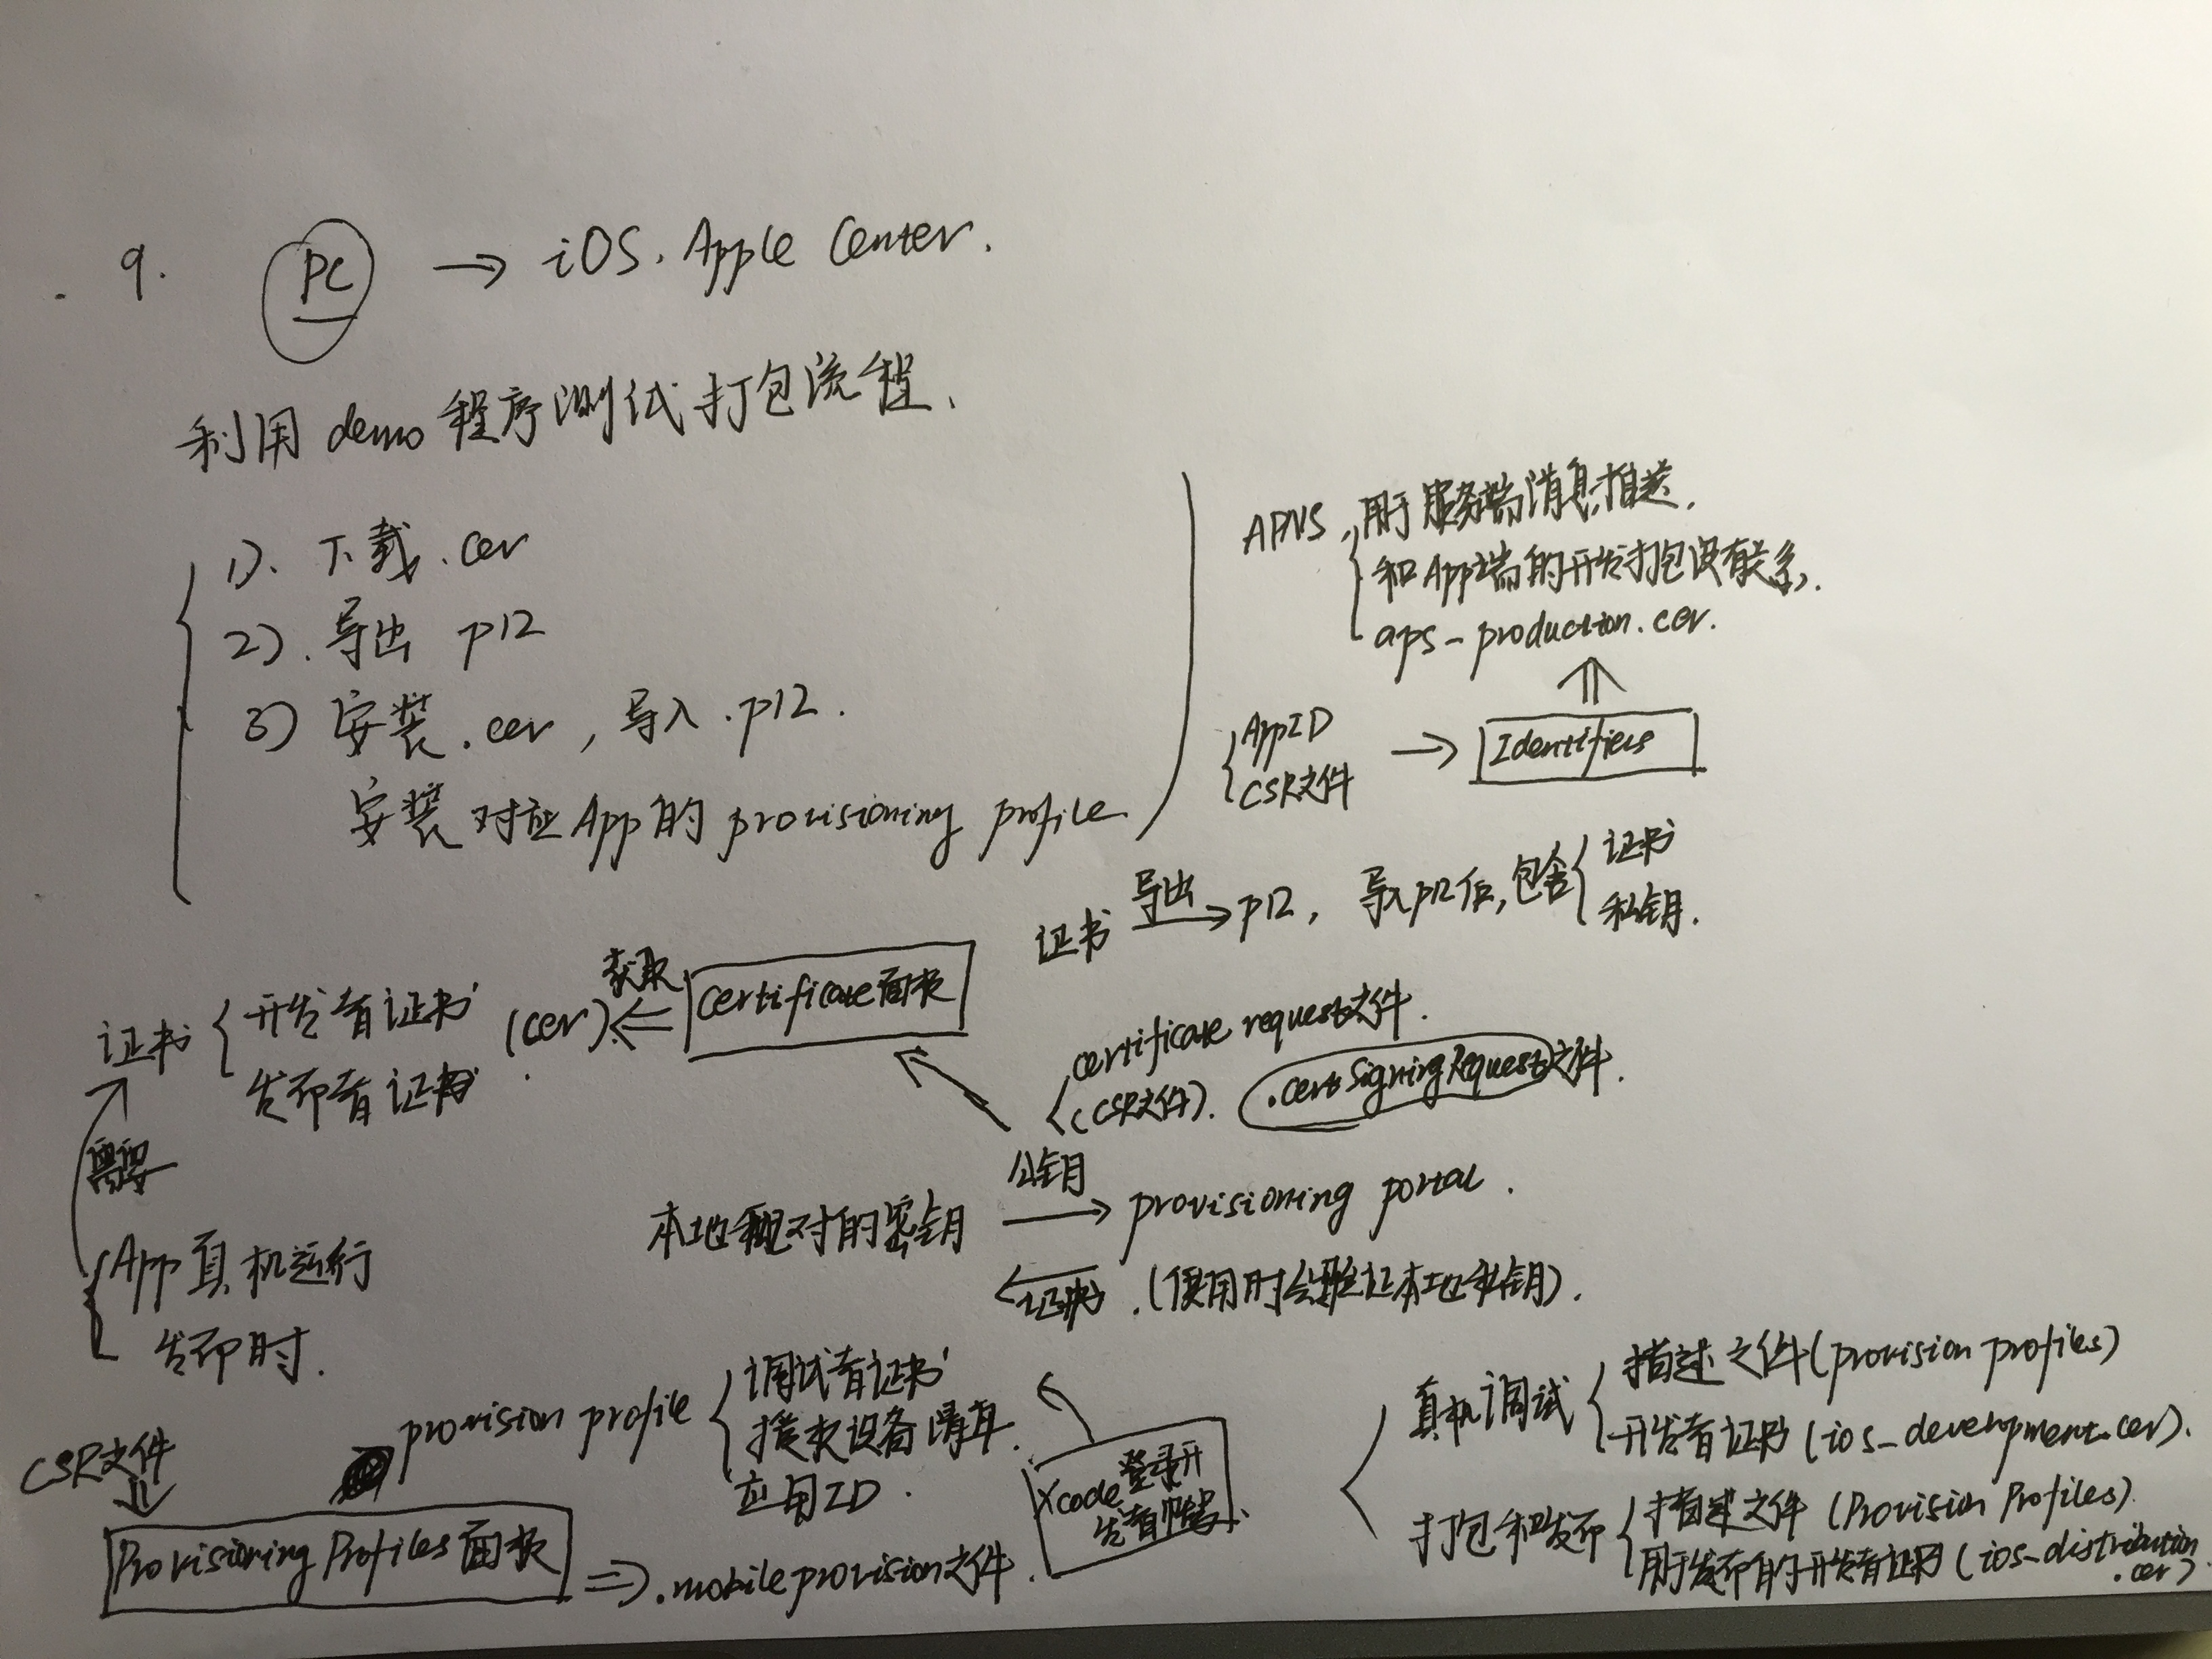 9. PC → iOS. Apple Center.
利用 demo 程序测试打包流程.
1). 下载.cer
2). 导出 p12
3) 安装.cer, 导入.p12.
安装对应App的provisioning profile
APNS, 用于服务端消息推送.
和App端的开发打包没有关系.
aps-production.cer.
AppID
CSR文件
→ Identifiers
证书 导出 → p12, 导入p12后, 包含
证书
私钥.
证书
开发者证书
发布者证书.
(cer) 获取 ⇐ Certificate面板
certificate request文件.
(CSR文件). .certSigningRequest文件.
需要
本地配对的密钥 公钥 → provisioning portal.
← 证书. (使用时会验证本地私钥).
App真机运行
发布时.
provision profile
调试者证书
授权设备清单.
应用ID.
Xcode登录开
发者帐号.
CSR文件
⇓
Provisioning Profiles面板 ⇒ .mobileprovision文件.
真机调试
描述文件(provision profiles)
开发者证书(ios_development.cer).
打包和发布
描述文件(Provision Profiles).
用于发布的开发者证书(ios-distribution
.cer)